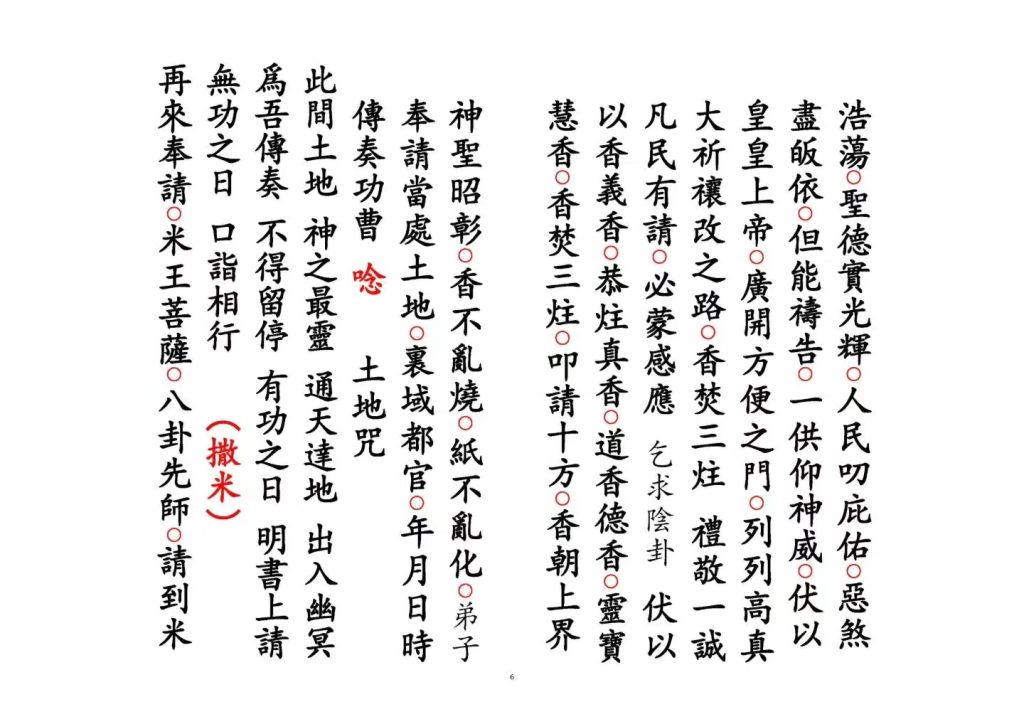 浩蕩○聖德實光輝○人民叨庇佑○惡煞
盡皈依○但能禱告○一供仰神威○伏以
皇皇上帝○廣開方便之門○列列高真
大祈禳改之路○香焚三炷 禮敬一誠
凡民有請○必蒙感應 乞求陰卦 伏以
以香義香○恭炷真香○道香德香○靈寶
慧香○香焚三炷○叩請十方○香朝上界
神聖昭彰○香不亂燒○紙不亂化○弟子
奉請當處土地○裏域都官○年月日時
傳奏功曹 唸 土地咒
此間土地 神之最靈 通天達地 出入幽冥
爲吾傳奏 不得留停 有功之日 明書上請
無功之日 口詣相行 (撒米)
再來奉請○米王菩薩○八卦先師○請到米
6